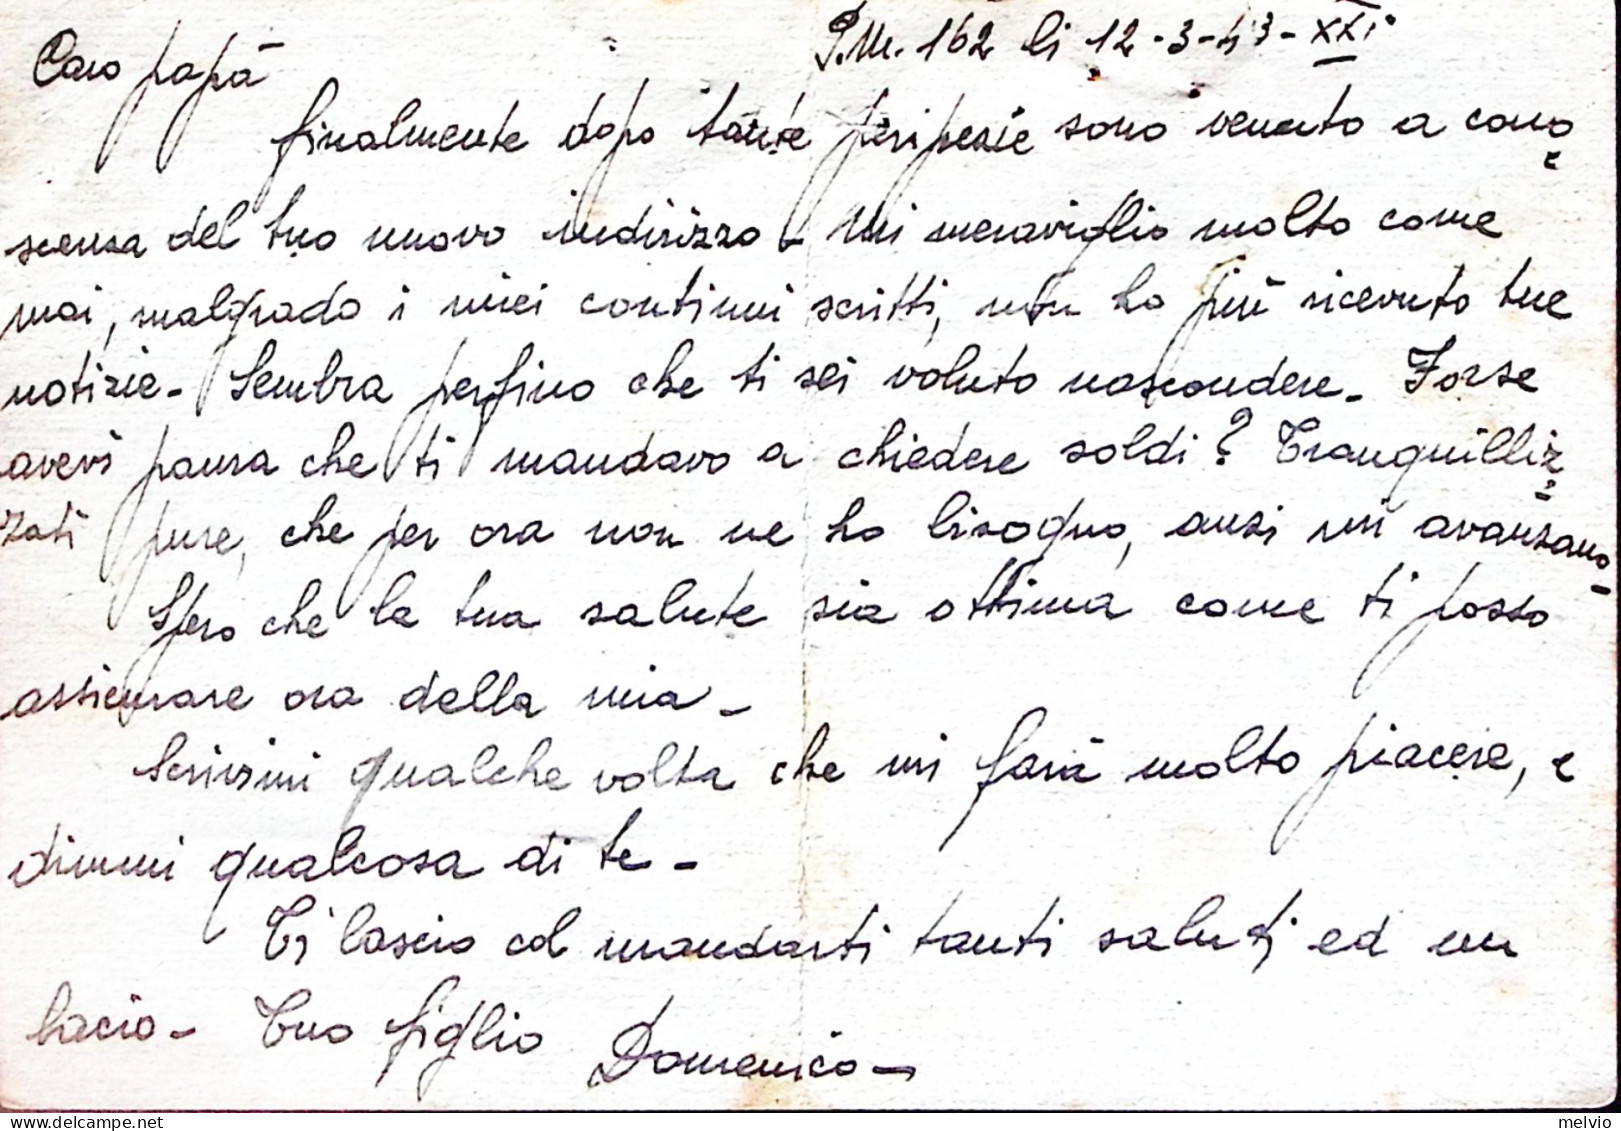 P.M. 162 li 12-3-43-XXI
Caro papà
finalmente dopo tante peripezie sono venuto a cono=
scenza del tuo nuovo indirizzo - Mi meraviglio molto come
mai, malgrado i miei continui scritti, non ho più ricevuto tue
notizie - Sembra perfino che ti sei voluto nascondere - Forse
avevi paura che ti mandavo a chiedere soldi? Tranquilliz=
zati pure, che per ora non ne ho bisogno, anzi mi avanzano -
Spero che la tua salute sia ottima come ti posso
assicurare ora della mia -
Scrivimi qualche volta che mi farà molto piacere, e
dimmi qualcosa di te -
Ti lascio col mandarti tanti saluti ed un
bacio - Tuo figlio Domenico -
melvio